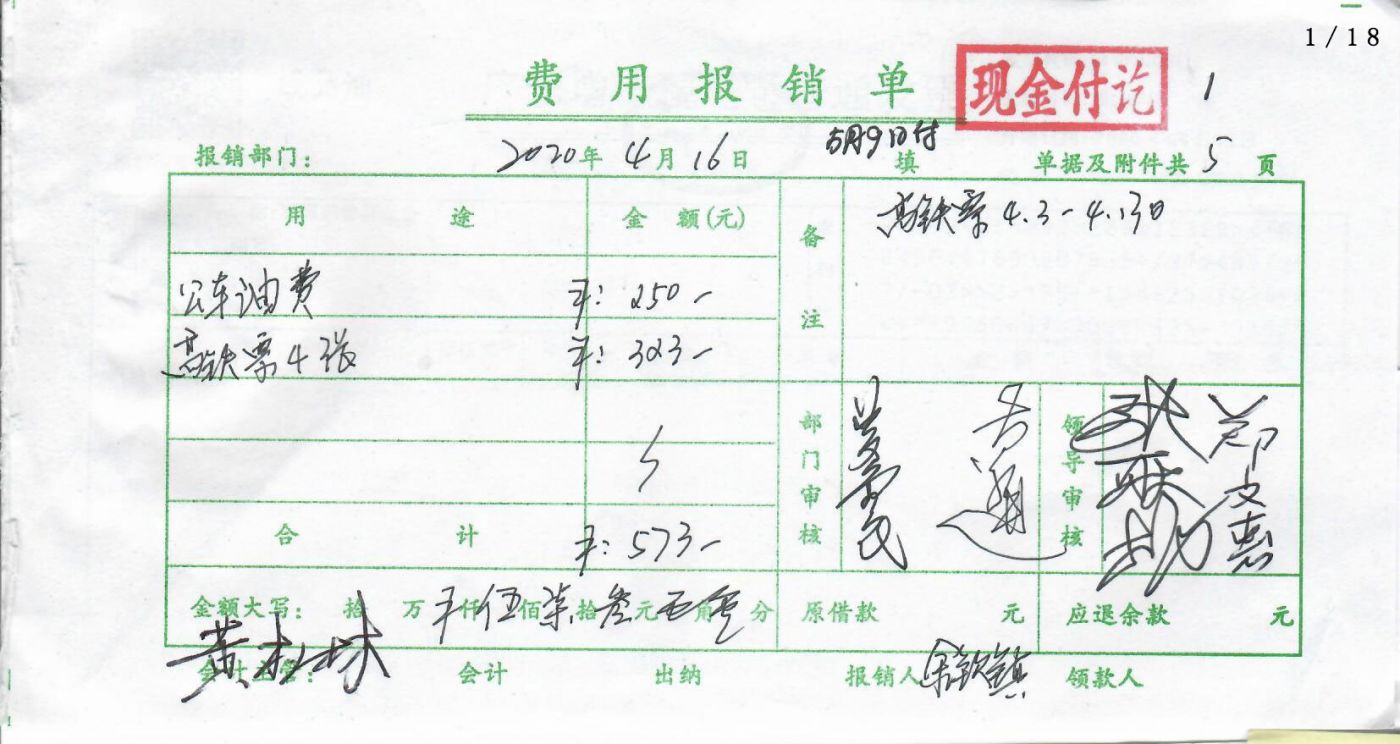 1/18
费用报销单 现金付讫 1
5月9日付
报销部门： 2020年4月16日 填 单据及附件共5页
用途 金额(元) 备注 高铁票4.3-4.13日
公车油费 ¥:250-
高铁票4张 ¥:323-
部门审核 领导审核 郑文惠
合计 ¥:573-
金额大写： 拾 万 ¥仟伍佰柒拾叁元 角 分 原借款 元 应退余款 元
会计主管： 会计 出纳 报销人 领款人